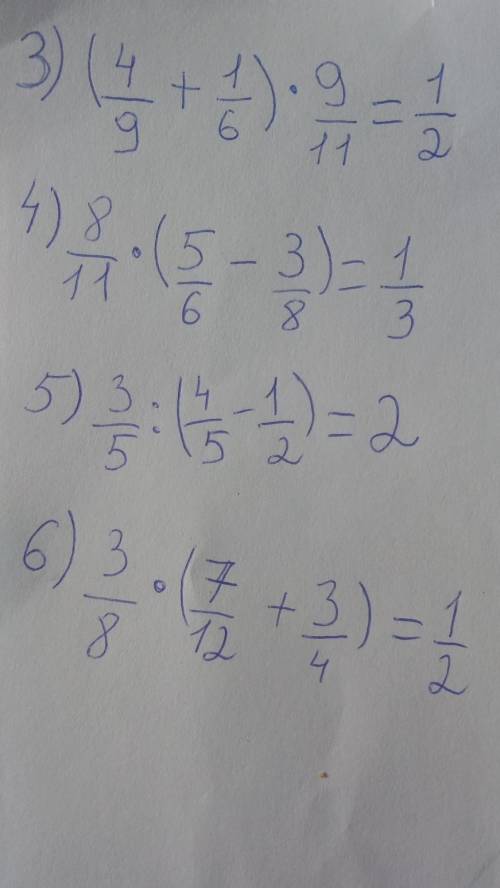 3) (4/9 + 1/6) · 9/11 = 1/2
4) 8/11 · (5/6 − 3/8) = 1/3
5) 3/5 : (4/5 − 1/2) = 2
6) 3/8 · (7/12 + 3/4) = 1/2